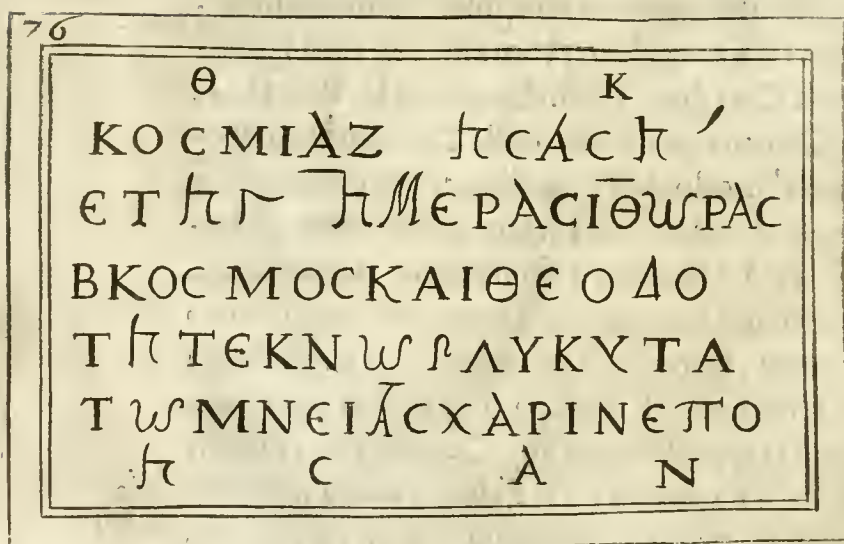 76
Θ Κ
ΚΟϹΜΙΑΖ ΗϹΑϹΗ
ЄΤΗΓ ΗΜЄΡΑϹΙΘωΡΑϹ
ΒΚΟϹΜΟϹΚΑΙΘЄΟΔΟ
ΤΗΤЄΚΝω ΛΥΚΥΤΑ
ΤωΜΝЄΙΑϹΧΑΡΙΝЄΠΟ
Η Ϲ Α Ν